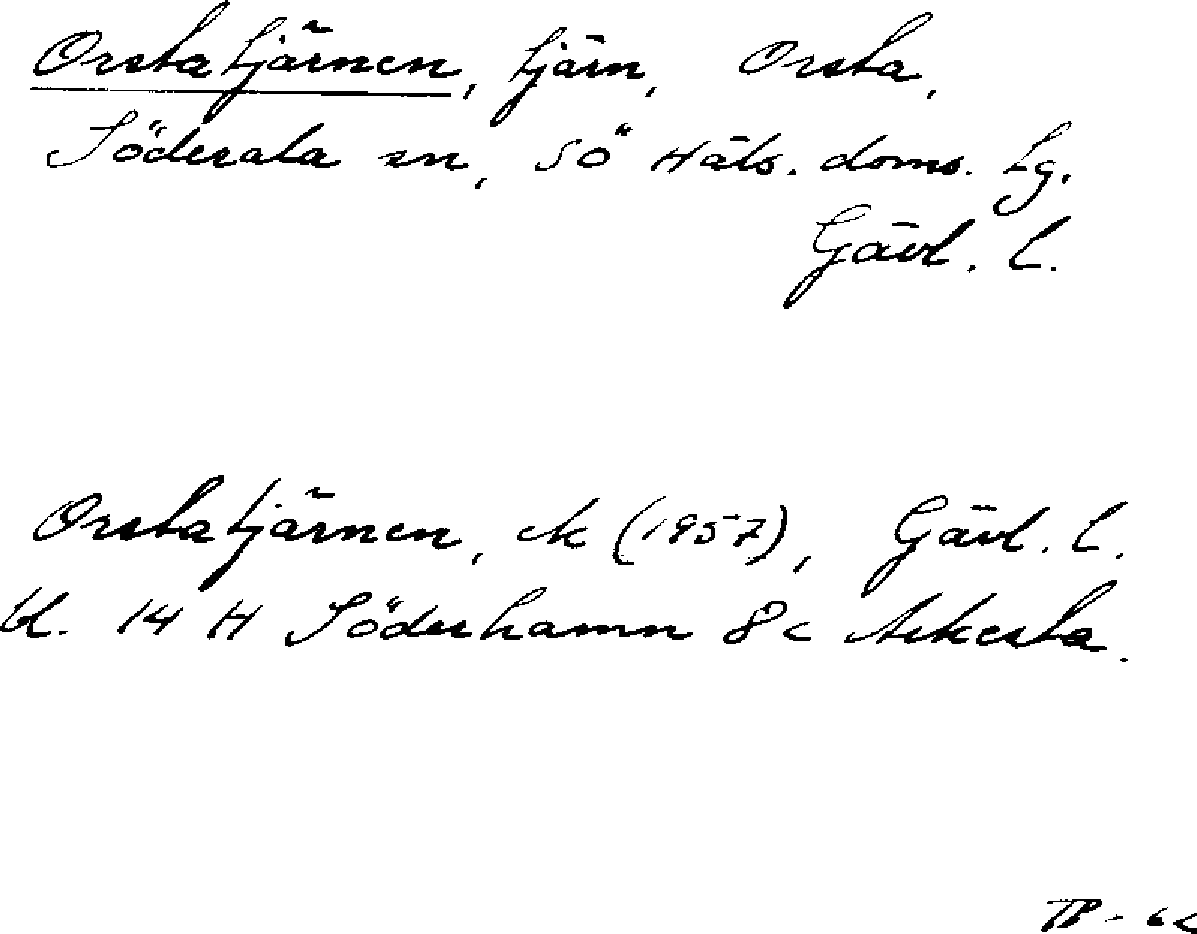 Orstatjärnen, tjärn, Orsta,
Söderala sn, SÖ Häls. doms. tg.
Gävl. l.
Orstatjärnen, ek (1957), Gävl. l.
bl. 14 H Söderhamn 8c Askesta.